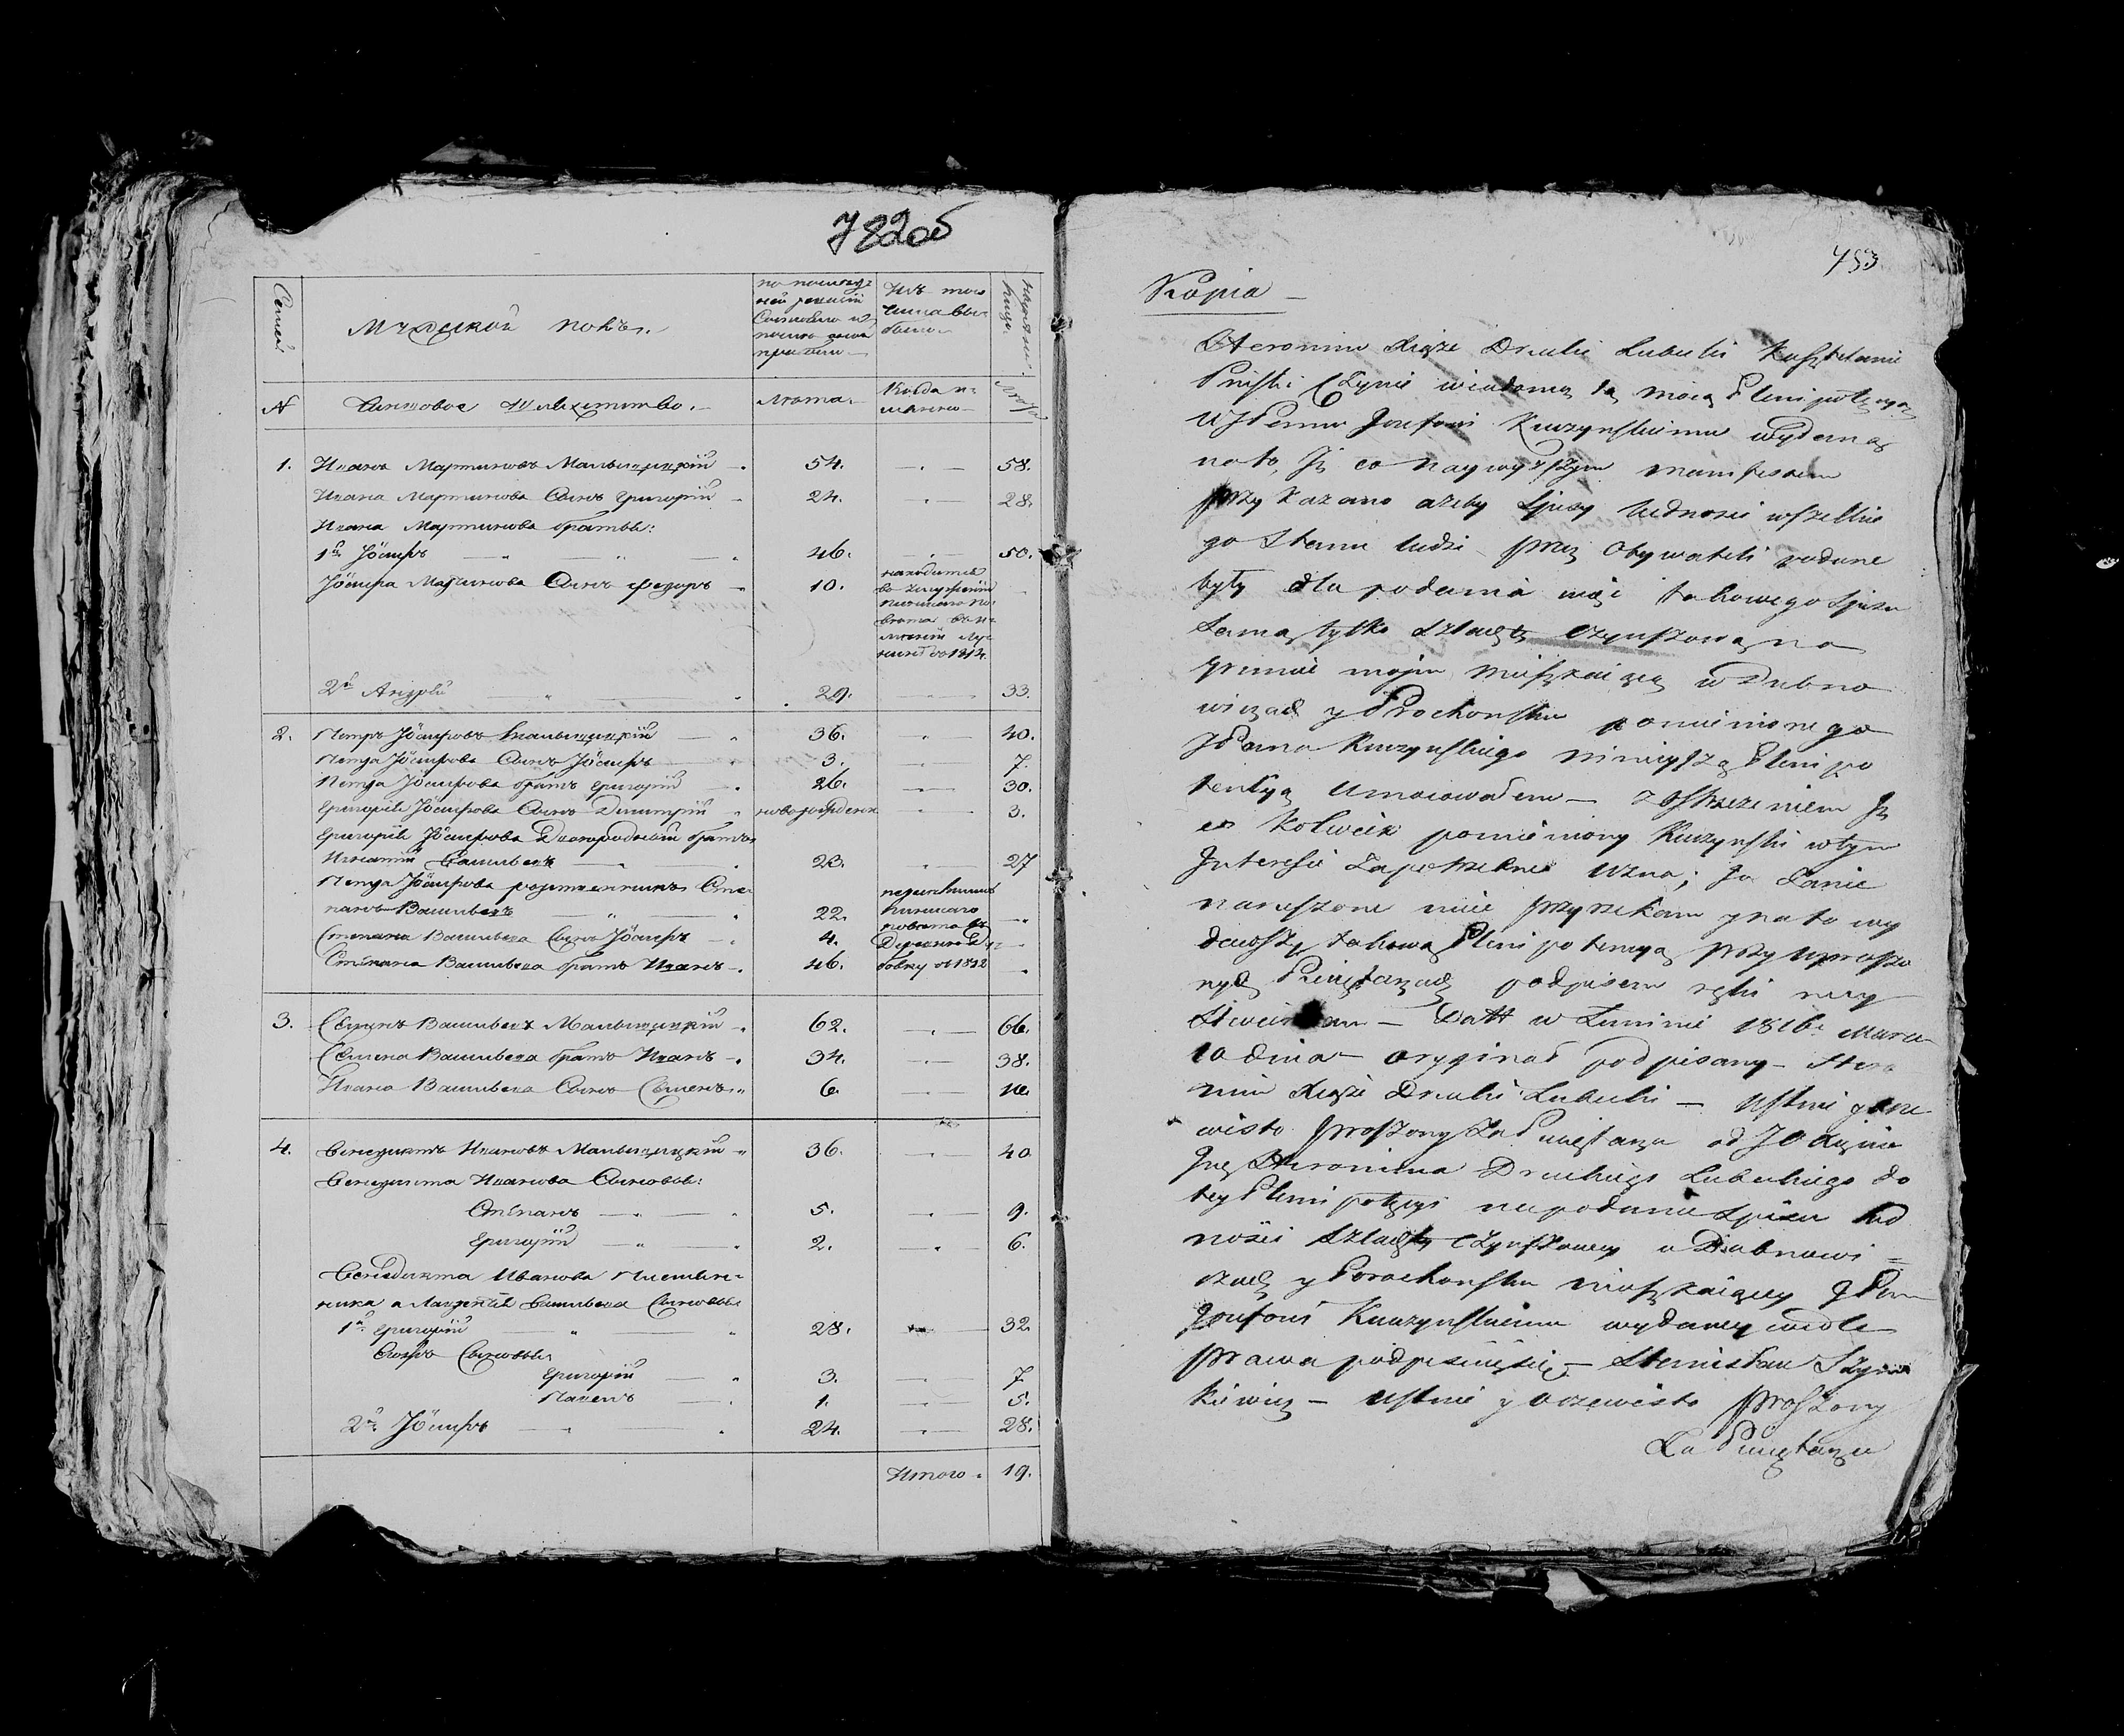 782об
Семей
Мужеской полъ.
по последней ревизiи состояло и после оной прибыло
Изъ того числа выбыло
Налицо
№
Чиншовое шляхетство.
Лета.
Когда именно
Лета
1. Иванъ Мартиновъ Малышицкiй 54. 58.
Ивана Мартинова Сынъ Григорiй 24. 28.
Ивана Мартинова братья:
1й Iосифъ 46. 50.
Iосифа Мартинова Сынъ Федоръ 10. находится
Пинскаго По
вета
1814.
2й Андрей 29. 33.
2. Петръ Iосифовъ Малышицкiй 36. 40.
Петра Iосифова Сынъ Iосифъ 3. 7.
Петра Iосифова братъ Григорiй 26. 30.
Григорiя Iосифова Сынъ Димитрiй новорожденъ 3.
Григорiя Iосифова Двоюродный братъ
Васильевъ 23. 27
Петра Iосифова Сте
панъ Васильевъ 22. Пинскаго
повета въ
Степана Васильева Сынъ Iосифъ 4. Деревню Ду
Степана Васильева братъ Иванъ 46. бовку 1812
3. Семенъ Васильевъ Малышицкiй 62. 66.
Семена Васильева братъ Иванъ 34. 38.
Ивана Васильева Сынъ Семенъ 6. 10.
4. Венедиктъ Ивановъ Малышицкiй 36. 40
Венедикта Иванова Сыновья:
Степанъ 5. 9.
Григорiй 2. 6.
Венедикта Иванова племян
ника Лаврентiя Васильева Сыновья
1й Григорiй 28. 32
Сыновья
Григорiй 3. 7
Павелъ 1. 5.
2й Iосифъ 24. 28.
Итого 19.
783
Kopia
Hieronim Xiąże Drucki Lubecki Kasztelanic
Piński Czynię wiadomą tą mocą Plenipotencyą
WJPanu Jozefowi Kuczynskiemu wydaną
na to, Jż co naywyższym manifestem
przykazano ażeby spisy ludnosci wszelkie
go stanu ludzi przez Obywateli podane
były dla podania więc takowego spisu
samą tylko szlachtę czynszową na
gruncie moim mieszkaiącą w Dubno
wiczach y Porochonsku pomienionego
JPana Kuczynskiego ninieyszą Plenipo
tencyą umocowałem — z ostrzeżeniem Jż
co kolwiek pomieniony Kuczynski w tym
Jnteresie za potrzebne uzna; Ja za nie
naruszone mieć przyrzekam y na to wy
dawszy takową Plenipotencyą przy uproszo
nych Pieczętarzach podpisem ręki mey
stwierdzam — Datt w Luninie 1816. Marca
10 dnia — oryginał podpisany — Hiero
nim Xiąże Drucki Lubecki — Ustnie y ocze
wisto proszony za Pieczętarza od JO Xięcia
Jmć Hieronima Druckiego Lubeckiego do
tey Plenipotencyi na podanie spisu lud
ności szlachty czynszowey w Dubnowi
czach y Porochonsku mieszkaiącey JPanu
Jozefowi Kuczynskiemu wydaney wedle
prawa podpisuię się — Stanisław Szym
kiewicz — Ustnie y oczewisto proszony
za Pieczętarza